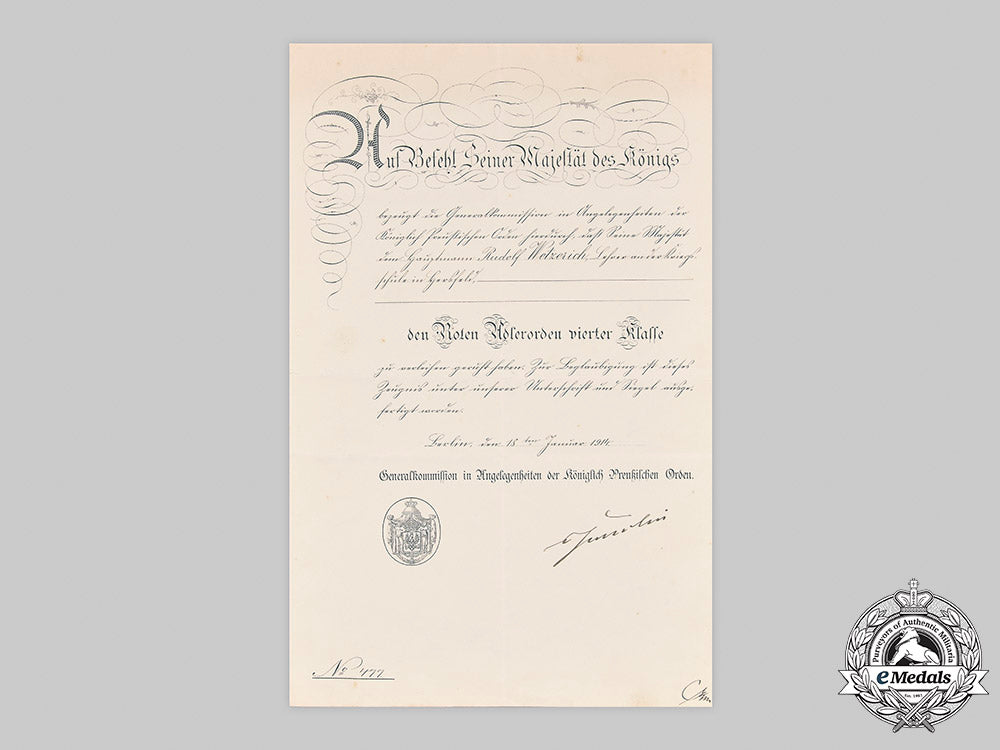 Auf Befehl Seiner Majestät des Königs
bezeugt die Generalkommission in Angelegenheiten der
Königlich Preußischen Orden hierdurch, daß Seine Majestät
dem Hauptmann Rudolf Wetzerich, Lehrer an der Kriegs-
schule in Hersfeld,
den Roten Adlerorden vierter Klasse
zu verleihen geruht haben. Zur Beglaubigung ist dieses
Zeugnis unter unserer Unterschrift und Siegel ausge-
fertigt worden.
Berlin, den 18ten Januar 1914
Generalkommission in Angelegenheiten der Königlich Preußischen Orden.
No 477
Purveyors of Authentic Militaria
eMedals